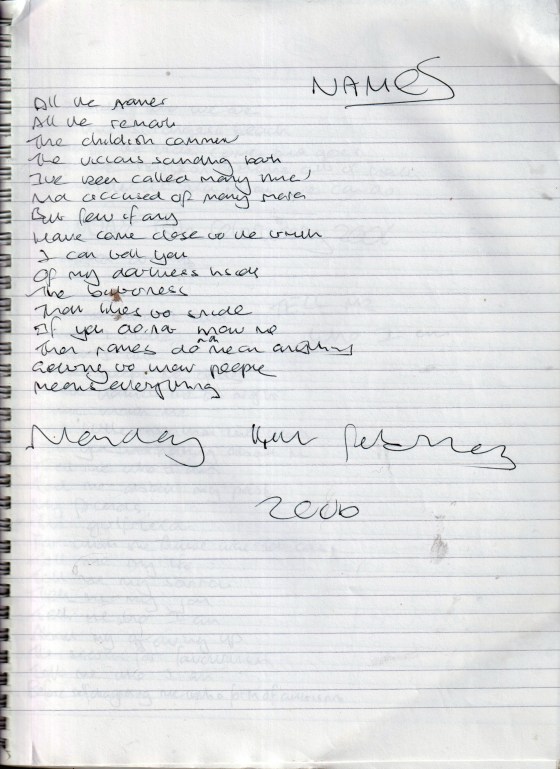 NAMES
All the names
All the remarks
The childish comments
The vicious sounding bark
I've been called many times
And accused of many more
But few if any
Have come close to the truth
I can tell you
Of my darkness inside
The bitterness
That likes to slide
If you do not know me
Then names do not mean anything
Getting to know people
means everything
Monday February
2006